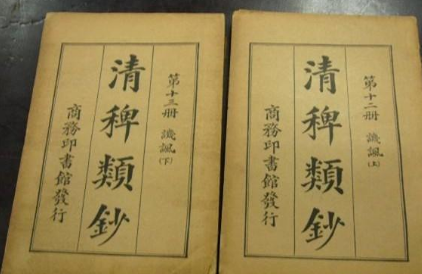 第十二冊 譏諷(上)
清稗類鈔
商務印書館發行
第十三冊 譏諷(下)
清稗類鈔
商務印書館發行